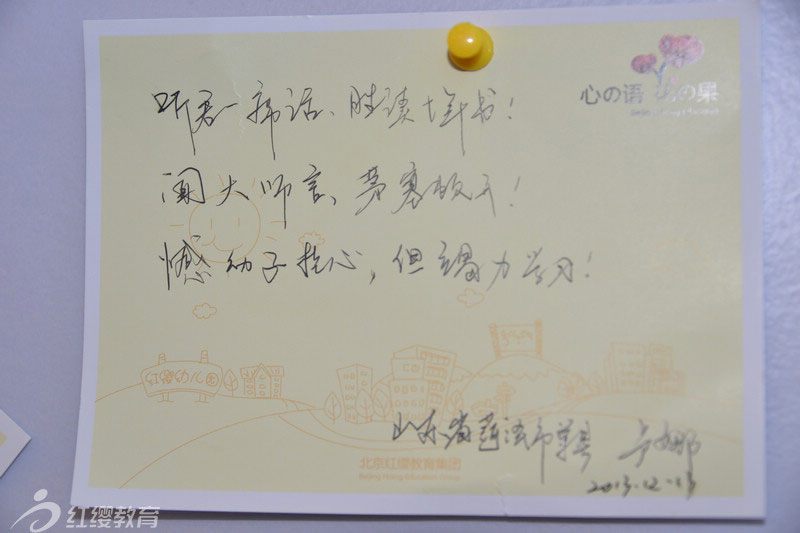 心の语 の果
听君一席话、胜读十年书！
闻大师言、茅塞顿开！
憾幼子扰心，但竭力学习！
红缨幼儿园
山东省 单县 卢娜
北京红缨教育集团
Beijing Hoing Education Group
2013.12.13
红缨教育